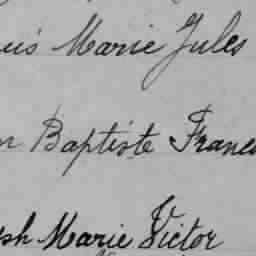 uis Marie Jules
n Baptiste Franco
sh Marie Victor